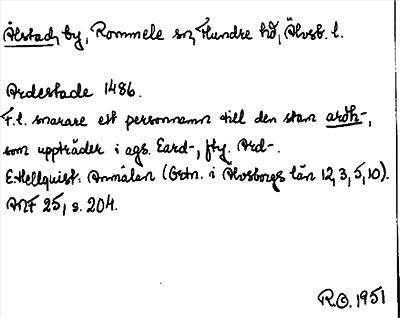 Ålstad, by, Rommele sn, Flundre hd, Älvsb. l.
Ardestade 1486.
F.l. snarare ett personnamn till den stam ardh-,
som uppträder i ags. Eard-, fty. Ard-.
E. Hellquist: Anmälan (Ortn. i Älvsborgs län 12, 3, 5, 10).
ANF 25, s. 204.
R.O. 1951